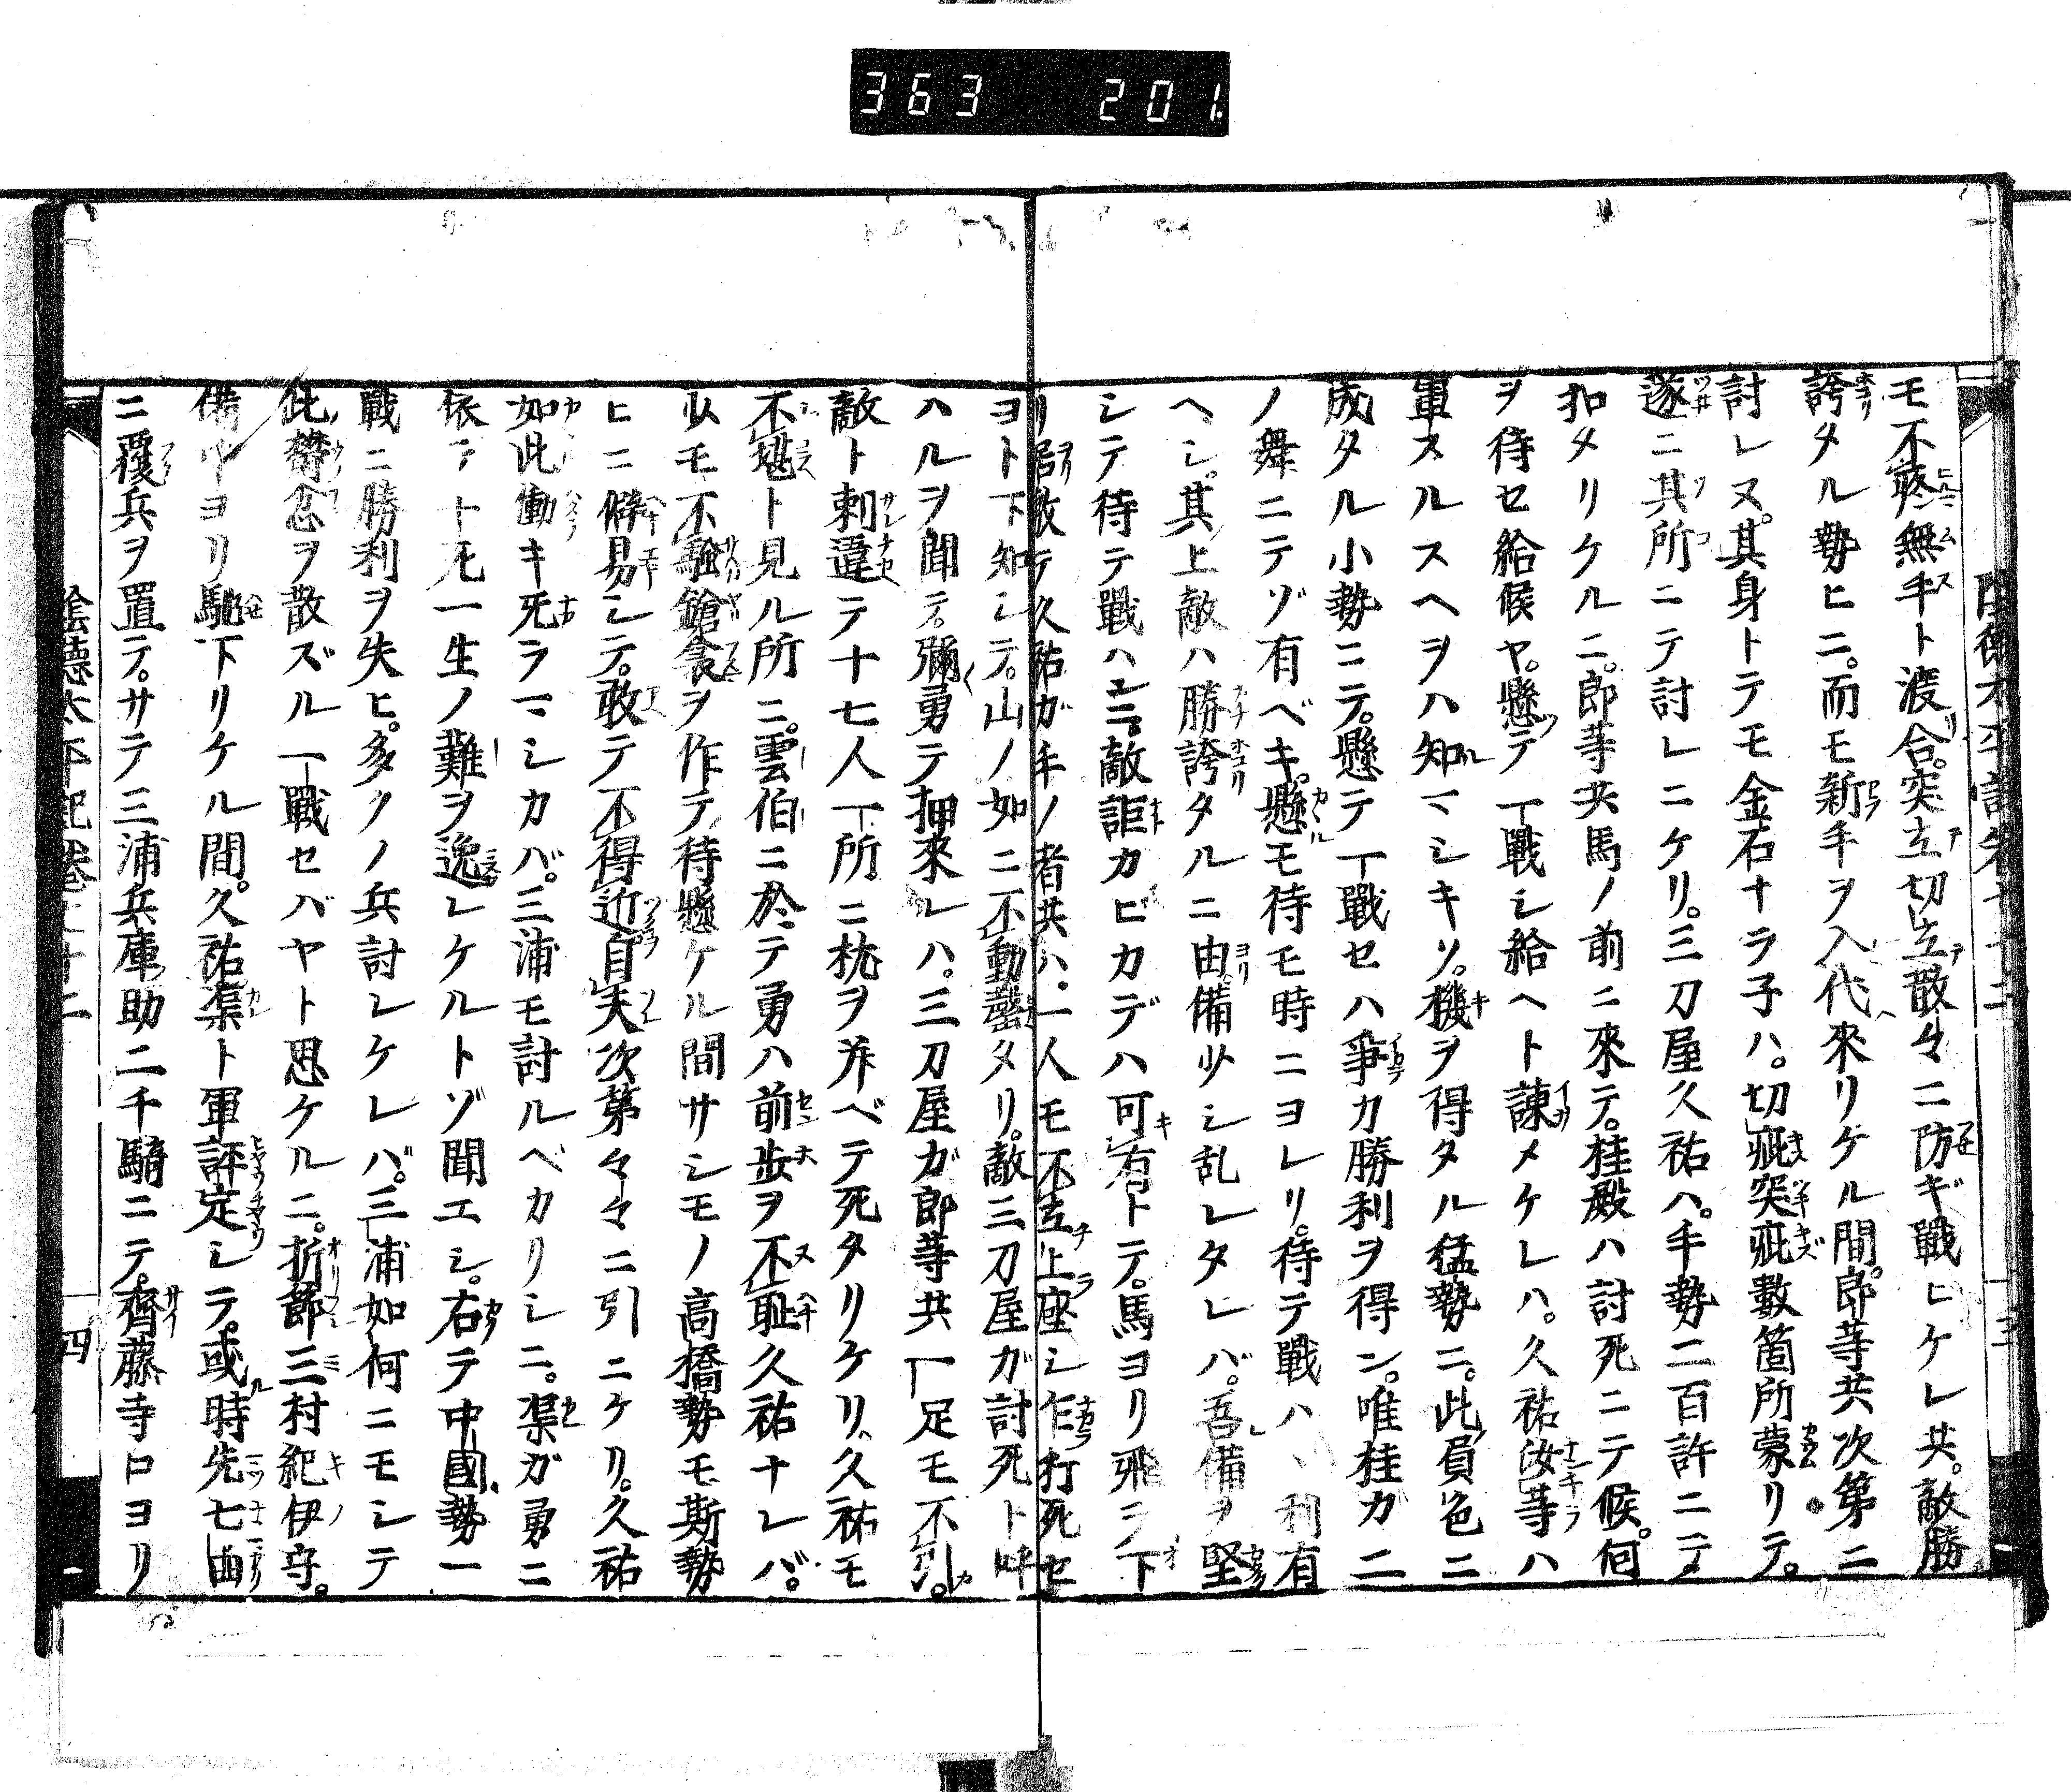 363 201
モ不疼無手ト渡合。突立切立散々ニ防ギ戰ヒケレ共。敵勝
誇タル勢ヒニ。而モ新手ヲ入代來リケル間。郎等共次第ニ
討レヌ。其身トテモ金石ナラ子ハ。切疵突疵數箇所蒙リテ。
遂ニ其所ニテ討レニケリ。三刀屋久祐ハ。手勢二百許ニテ
扣タリケルニ。郎等共馬ノ前ニ來テ。桂殿ハ討死ニテ候。何
ヲ待セ給候ヤ。懸テ一戰シ給ヘト諫メケレハ。久祐汝等ハ
軍スルスヘヲハ知マシキソ。機ヲ得タル猛勢ニ。此員色ニ
成タル小勢ニテ。懸テ一戰セハ爭カ勝利ヲ得ン。唯桂カ二
ノ舞ニテゾ有ベキ。懸モ待モ時ニヨレリ。待テ戰ハヽ利有
ヘシ。其上敵ハ勝誇タルニ由。備少シ乱レタレバ。吾備ヲ堅
シテ待テ戰ハンニ。敵詎カビカデハ可有トテ。馬ヨリ飛ラ下
リ居敷テ久祐ガ手ノ者共ハ。一人モ不立上座シ乍打死セ
ヨト下知シテ。山ノ如ニ不動罄タリ。敵三刀屋ガ討死ト呼
ハルヲ聞テ。彌勇テ押來レハ。三刀屋ガ郎等共一足モ不引。
敵ト刺違テ十七人一所ニ枕ヲ并ベテ死タリケリ。久祐モ
不堪ト見ル所ニ。雲伯ニ於テ勇ハ前歩ヲ不恥久祐ナレバ。
少モ不騒鎗衾ヲ作テ待懸ケル間サシモノ高橋勢モ斯勢
ヒニ僻易シテ。敢テ不得近自夫次第々々ニ引ニケリ。久祐
如此働キ死ラマシカバ。三浦モ討ルベカリシニ。渠ガ勇ニ
依テ十死一生ノ難ヲ逸レケルトゾ聞エシ。右テ中國勢一
戰ニ勝利ヲ失ヒ。多クノ兵討レケレバ。三浦如何ニモシテ
此欝念ヲ散ズル一戰セバヤト思ケルニ。折節三村紀伊守。
備中ヨリ馳下リケル間。久祐渠ト軍評定シテ。或時先七曲
ニ覆兵ヲ置テ。サテ三浦兵庫助二千騎ニテ。齊藤寺口ヨリ
陰德太平記卷 四